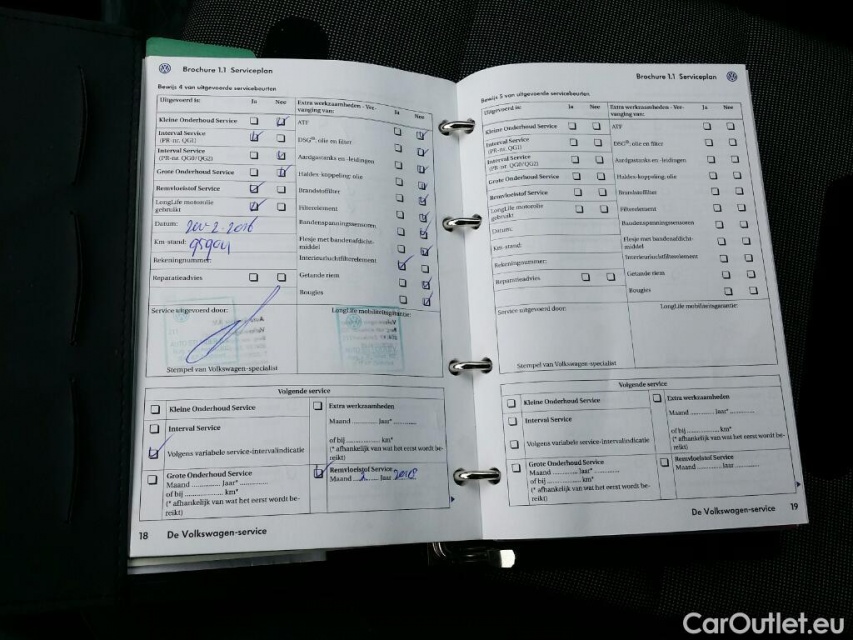 Brochure 1.1 Serviceplan
Bewijs 4 van uitgevoerde servicebeurten
Uitgevoerd is: Ja Nee
Kleine Onderhoud Service
Interval Service
(PR-nr. QG1)
Interval Service
(PR-nr. QG0/QG2)
Grote Onderhoud Service
Remvloeistof Service
LongLife motorolie
gebruikt
Datum:
Km-stand:
Rekeningnummer:
Reparatieadvies
Extra werkzaamheden - Ver-
vanging van: Ja Nee
ATF
DSG®: olie en filter
Aardgastanks en -leidingen
Haldex-koppeling: olie
Brandstoffilter
Filterelement
Bandenspanningssensoren
Flesje met bandenafdicht-
middel
Interieurluchtfilterelement
Getande riem
Bougies
Service uitgevoerd door:
LongLife mobiliteitsgarantie:
Stempel van Volkswagen-specialist
Volgende service
Kleine Onderhoud Service
Interval Service
Volgens variabele service-intervalindicatie
Grote Onderhoud Service
Maand ........... Jaar* ...........
of bij ........... km*
(* afhankelijk van wat het eerst wordt be-
reikt)
Extra werkzaamheden
Maand ........... Jaar* ...........
of bij ........... km*
(* afhankelijk van wat het eerst wordt be-
reikt)
Remvloeistof Service
Maand 2 Jaar 2018
18 De Volkswagen-service
Brochure 1.1 Serviceplan
Bewijs 5 van uitgevoerde servicebeurten
Uitgevoerd is: Ja Nee
Kleine Onderhoud Service
Interval Service
(PR-nr. QG1)
Interval Service
(PR-nr. QG0/QG2)
Grote Onderhoud Service
Remvloeistof Service
LongLife motorolie
gebruikt
Datum:
Km-stand:
Rekeningnummer:
Reparatieadvies
Extra werkzaamheden - Ver-
vanging van: Ja Nee
ATF
DSG®: olie en filter
Aardgastanks en -leidingen
Haldex-koppeling: olie
Brandstoffilter
Filterelement
Bandenspanningssensoren
Flesje met bandenafdicht-
middel
Interieurluchtfilterelement
Getande riem
Bougies
Service uitgevoerd door:
LongLife mobiliteitsgarantie:
Stempel van Volkswagen-specialist
Volgende service
Kleine Onderhoud Service
Interval Service
Volgens variabele service-intervalindicatie
Grote Onderhoud Service
Maand ........... Jaar* ...........
of bij ........... km*
(* afhankelijk van wat het eerst wordt be-
reikt)
Extra werkzaamheden
Maand ........... Jaar* ...........
of bij ........... km*
(* afhankelijk van wat het eerst wordt be-
reikt)
Remvloeistof Service
Maand ........... Jaar ...........
De Volkswagen-service 19
CarOutlet.eu